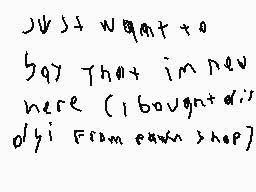 Just want to
say that im new
here (i bought dis
dsi from pawn shop)